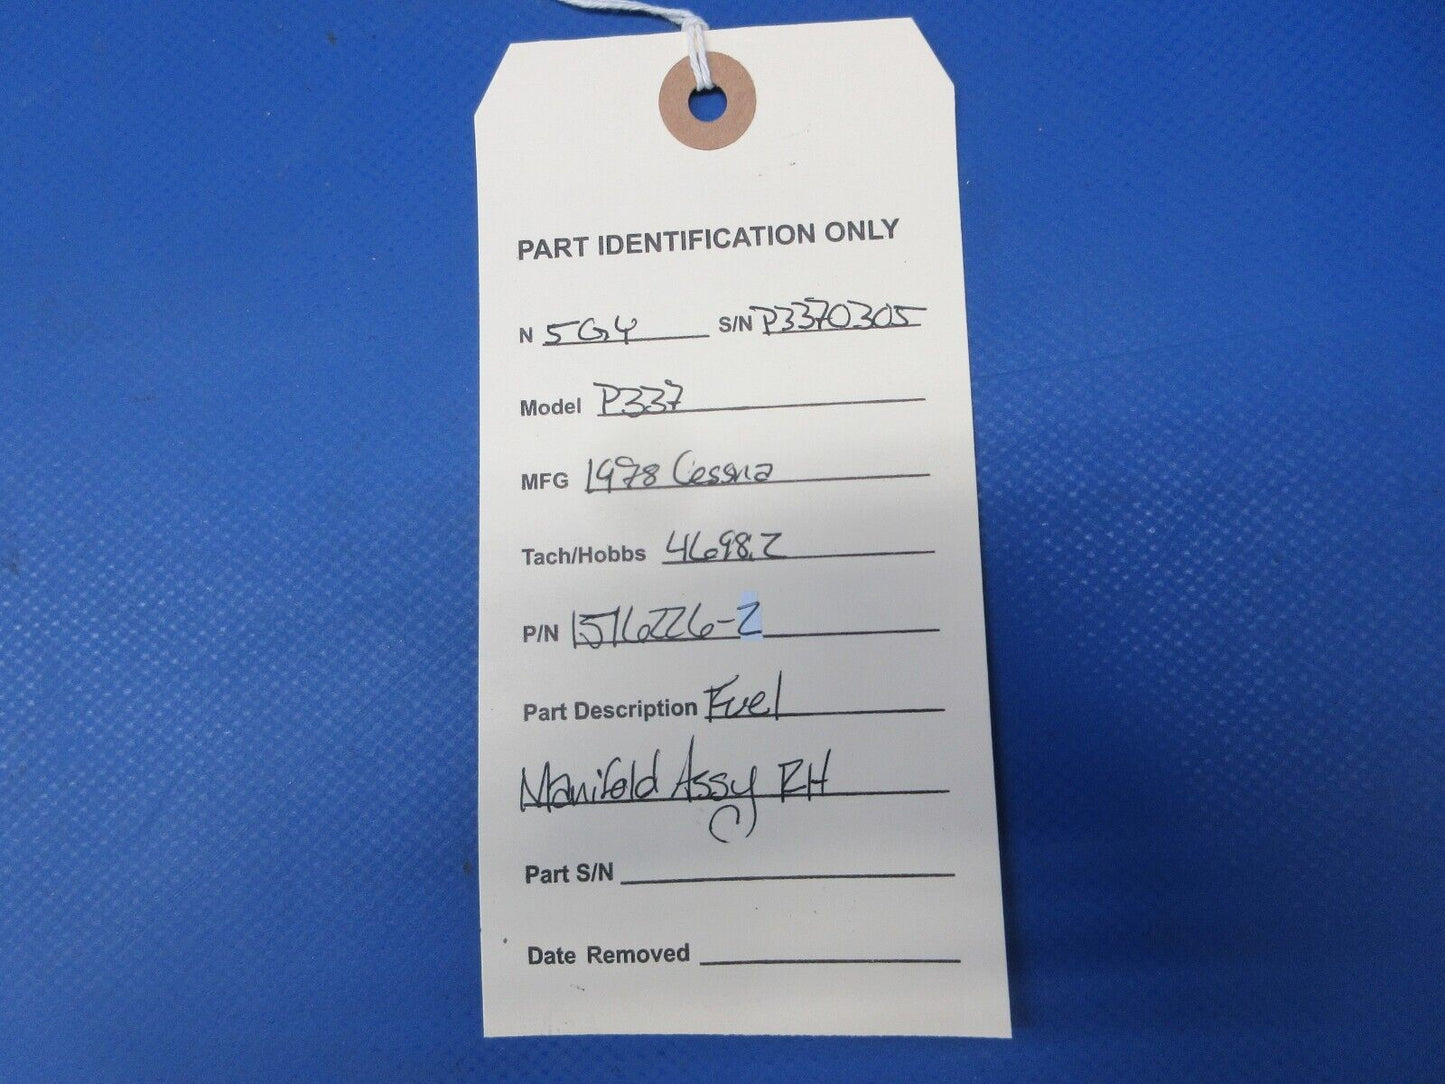 PART IDENTIFICATION ONLY
N 5GY S/N P3370305
Model P337
MFG 1978 Cessna
Tach/Hobbs 4698.2
P/N 1516226-2
Part Description Fuel
Manifold Assy RH
Part S/N
Date Removed